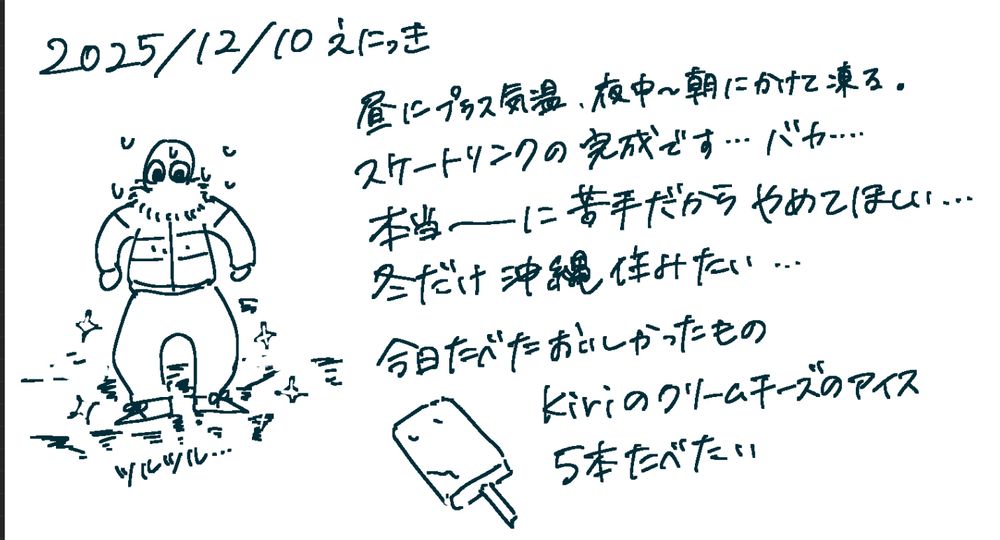 2025/12/10 えにっき
昼にプラス気温、夜中～朝にかけて凍る。
スケートリンクの完成です…バカ….
本当──に苦手だからやめてほしい…
冬だけ沖縄住みたい…
今日たべたおいしかったもの
kiriのクリームチーズのアイス
5本たべたい
ツルツル…